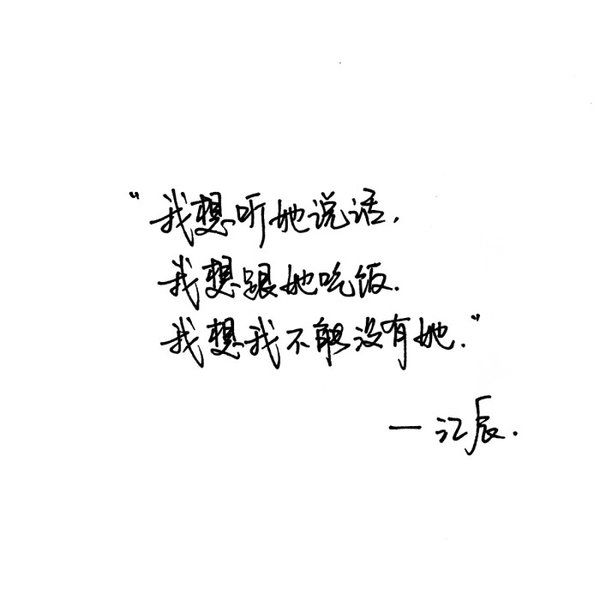 "我想听她说话.
我想跟她吃饭.
我想我不能没有她."
—江辰.